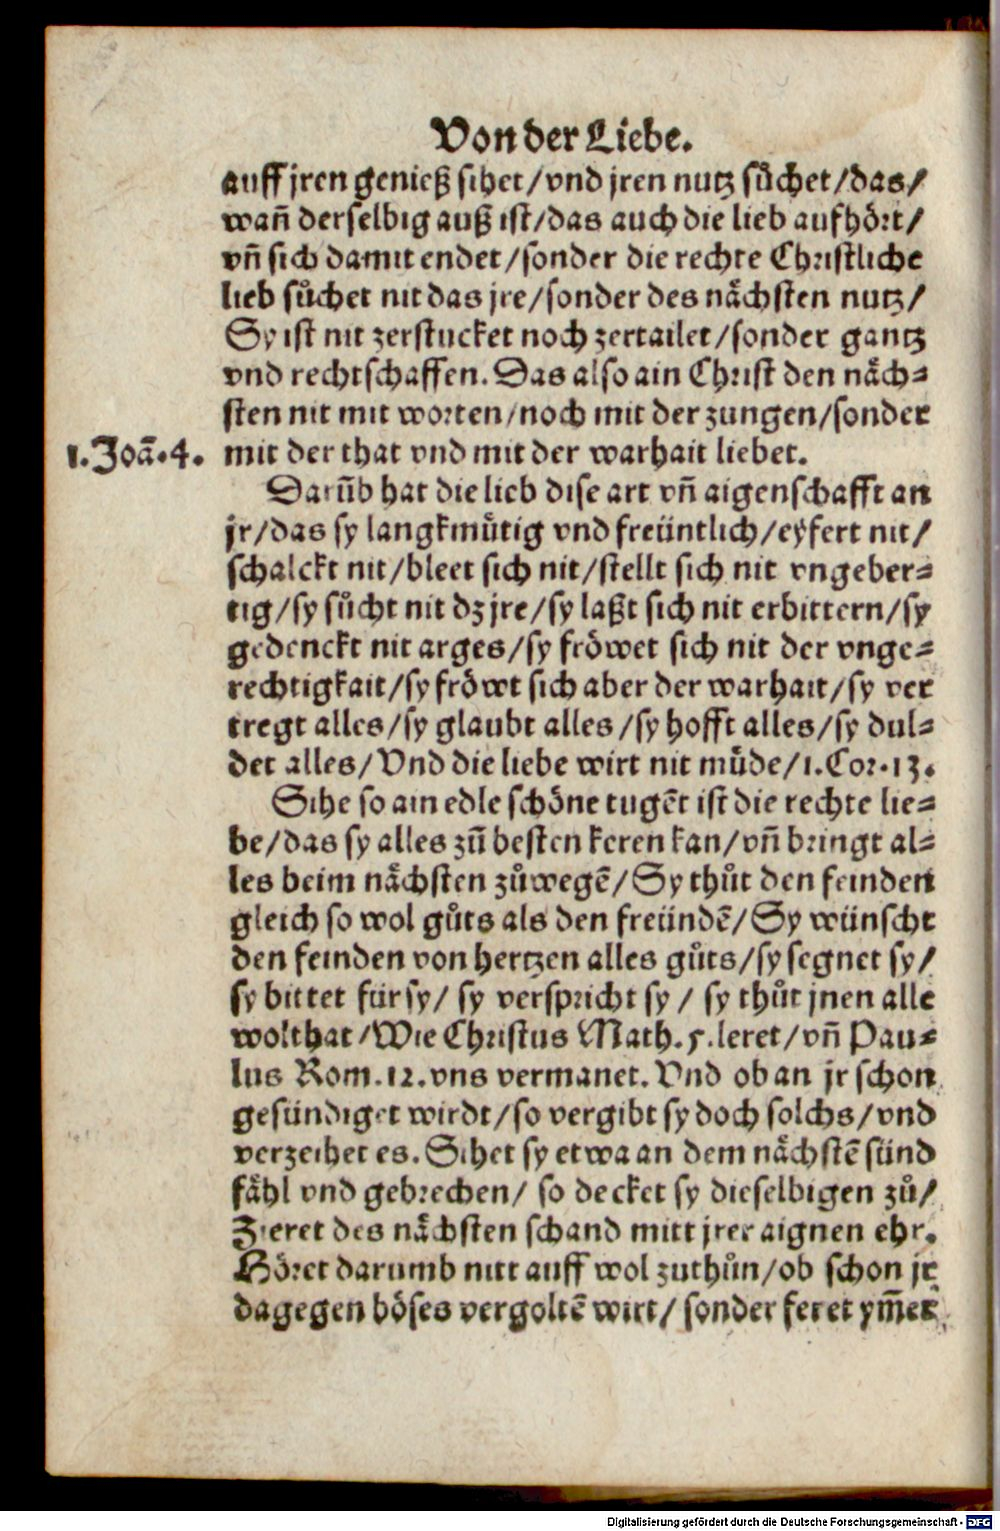 Von der Liebe.
auff jren genieß sihet/vnd jren nutz sůchet/das/
wañ derselbig auß ist/das auch die lieb aufhört/
vñ sich damit endet/sonder die rechte Christliche
lieb sůchet nit das jre/sonder des nächsten nutz/
Sy ist nit zerstucket noch zertailet/sonder gantz
vnd rechtschaffen. Das also ain Christ den näch⸗
sten nit mit worten/noch mit der zungen/sonder
1.Joã.4. mit der that vnd mit der warhait liebet.
Darũb hat die lieb dise art vñ aigenschafft an
jr/das sy langkmůtig vnd freüntlich/eyfert nit/
schalckt nit/bleet sich nit/stellt sich nit vngeber⸗
tig/sy sůcht nit dz jre/sy laßt sich nit erbittern/sy
gedenckt nit arges/sy fröwet sich nit der vnge⸗
rechtigkait/sy fröwt sich aber der warhait/sy ver
tregt alles/sy glaubt alles/sy hofft alles/sy dul⸗
det alles/Vnd die liebe wirt nit můde/1.Cor.13.
Sihe so ain edle schöne tugẽt ist die rechte lie⸗
be/das sy alles zũ besten keren kan/vñ bringt al⸗
les beim nächsten zůwegẽ/Sy thůt den feinden
gleich so wol gůts als den freündẽ/Sy wünscht
den feinden von hertzen alles gůts/sy segnet sy/
sy bittet für sy/ sy verspricht sy / sy thůt jnen alle
wolthat/Wie Christus Math.5.leret/vñ Pau⸗
lus Rom.12.vns vermanet. Vnd ob an jr schon
gesündiget wirdt/so vergibt sy doch solchs/vnd
verzeihet es. Sihet sy etwa an dem nächstẽ sünd
fähl vnd gebrechen/ so decket sy dieselbigen zů/
Zieret des nächsten schand mitt jrer aignen ehr.
Höret darumb nitt auff wol zuthůn/ob schon jr
dagegen böses vergoltẽ wirt/ sonder feret ym̃er
Digitalisierung gefördert durch die Deutsche Forschungsgemeinschaft - DFG